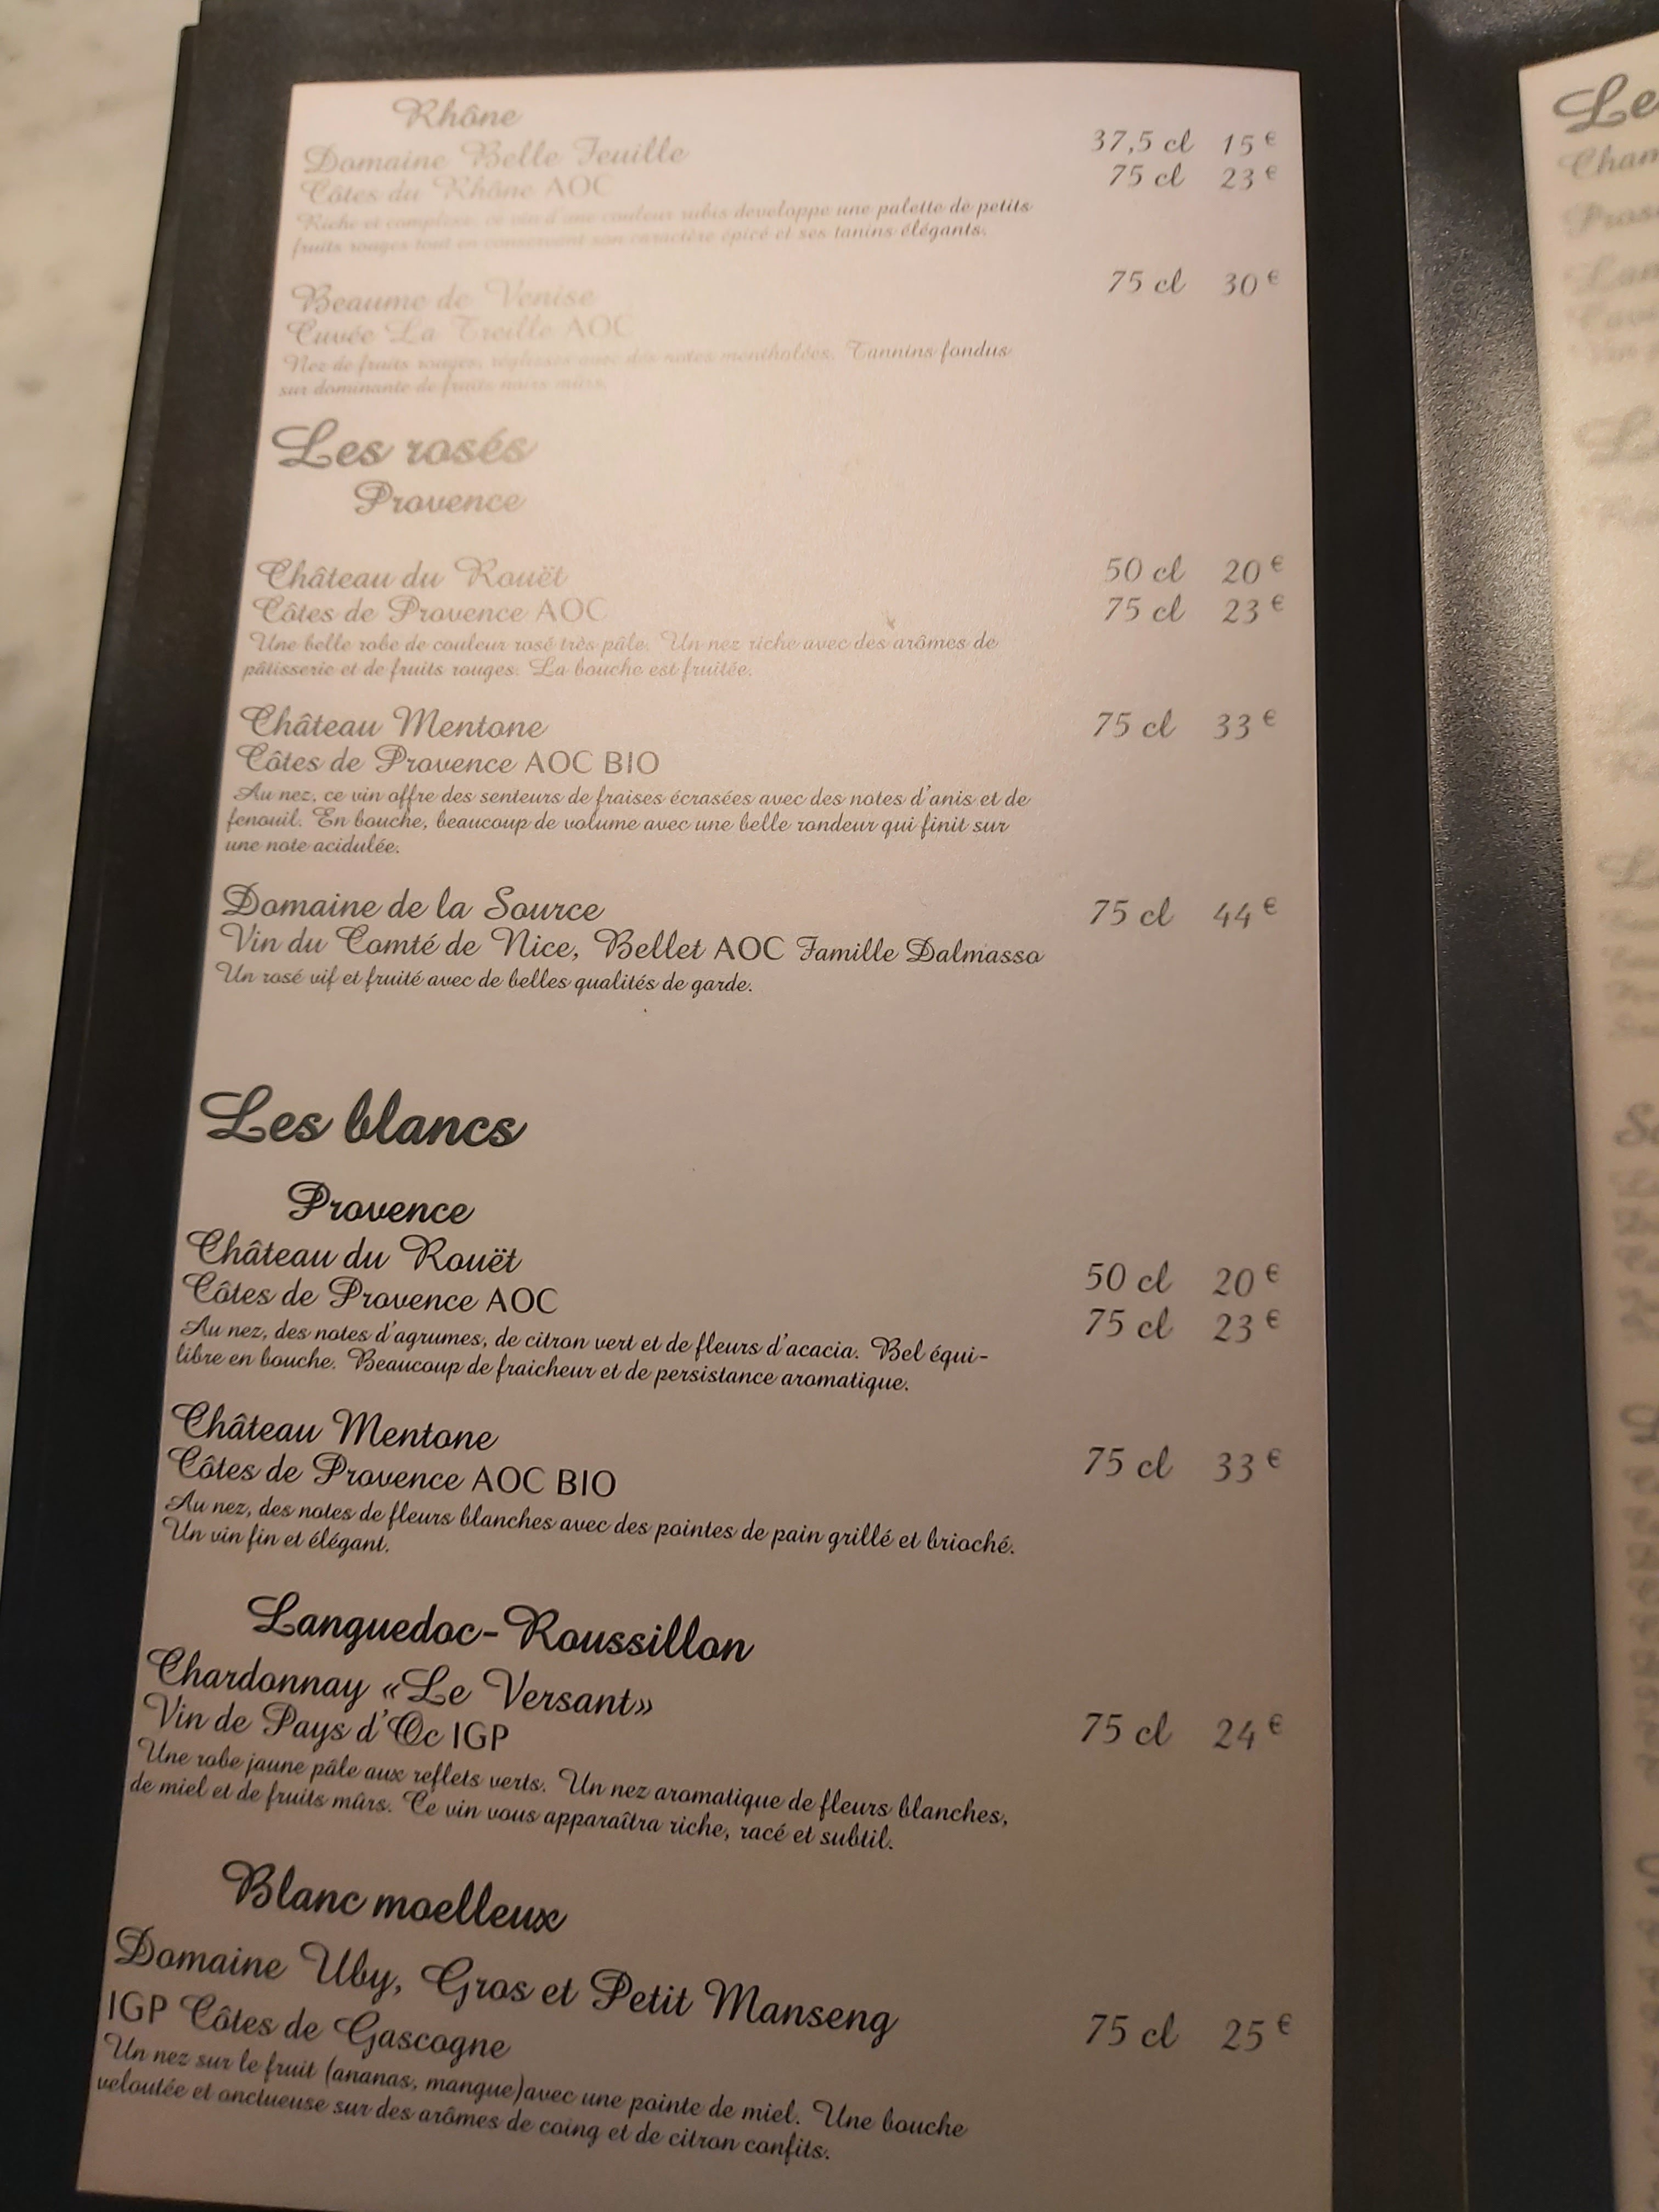 Rhône
Domaine Belle Feuille 37,5 cl 15 €
Côtes du Rhône AOC 75 cl 23 €
Riche et complexe, ce vin d'une couleur rubis developpe une palette de petits
fruits rouges tout en conservant son caractère épicé et ses tanins élégants.
Beaume de Venise 75 cl 30 €
Cuvée La Treille AOC
Nez de fruits rouges, réglisses avec des notes mentholées. Tannins fondus
sur dominante de fruits noirs mûrs.
Les rosés
Provence
Château du Rouët 50 cl 20 €
Côtes de Provence AOC 75 cl 23 €
Une belle robe de couleur rosé très pâle. Un nez riche avec des arômes de
pâtisserie et de fruits rouges. La bouche est fruitée.
Château Mentone 75 cl 33 €
Côtes de Provence AOC BIO
Au nez, ce vin offre des senteurs de fraises écrasées avec des notes d'anis et de
fenouil. En bouche, beaucoup de volume avec une belle rondeur qui finit sur
une note acidulée.
Domaine de la Source 75 cl 44 €
Vin du Comté de Nice, Bellet AOC Famille Dalmasso
Un rosé vif et fruité avec de belles qualités de garde.
Les blancs
Provence
Château du Rouët 50 cl 20 €
Côtes de Provence AOC 75 cl 23 €
Au nez, des notes d'agrumes, de citron vert et de fleurs d'acacia. Bel équi-
libre en bouche. Beaucoup de fraicheur et de persistance aromatique.
Château Mentone 75 cl 33 €
Côtes de Provence AOC BIO
Au nez, des notes de fleurs blanches avec des pointes de pain grillé et brioché.
Un vin fin et élégant.
Languedoc-Roussillon
Chardonnay «Le Versant» 75 cl 24 €
Vin de Pays d'Oc IGP
Une robe jaune pâle aux reflets verts. Un nez aromatique de fleurs blanches,
de miel et de fruits mûrs. Ce vin vous apparaîtra riche, racé et subtil.
Blanc moelleux
Domaine Uby, Gros et Petit Manseng 75 cl 25 €
IGP Côtes de Gascogne
Un nez sur le fruit (ananas, mangue)avec une pointe de miel. Une bouche
veloutée et onctueuse sur des arômes de coing et de citron confits.
Le
Cham